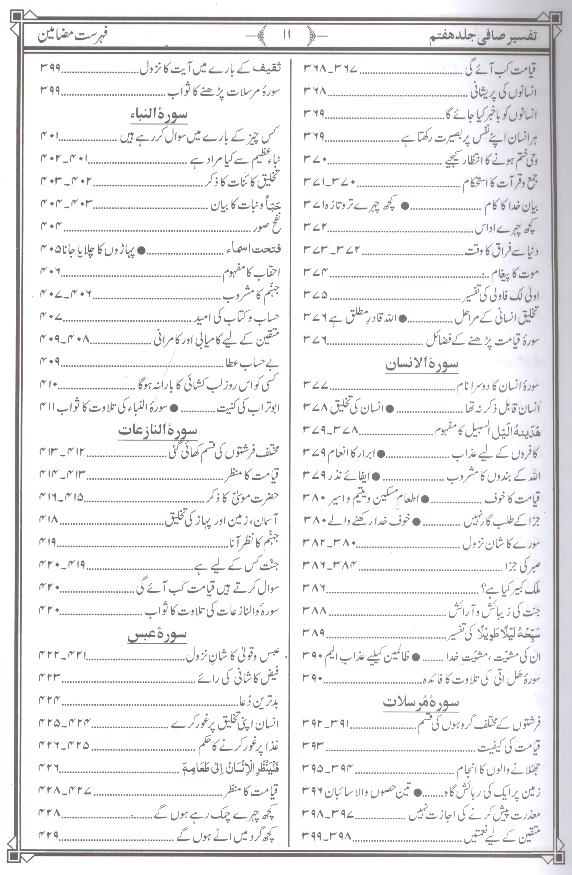 تفسیر صافی جلد ہفتم
۱۱
فہرست مضامین
قیامت کب آئے گی ۳۶۷۔۳۶۸
انسانوں کی پریشانی ۳۶۸
انسانوں کو باخبر کیا جائے گا ۳۶۹
ہر انسان اپنے نفس پر بصیرت رکھتا ہے ۳۶۹
وحی ختم ہونے کا انتظار کیجیے ۳۷۰
جمع و قرآت کا استحکام ۳۷۰۔۳۷۱
بیان خدا کا کام ● کچھ چہرے تر و تازہ ۳۷۱
کچھ چہرے اداس ۳۷۲
دنیا سے فراق کا وقت ۳۷۲۔۳۷۳
موت کا پیغام ۳۷۴
اولیٰ لک فاولی کی تفسیر ۳۷۵
تخلیق انسانی کے مراحل ● اللہ قادر مطلق ہے ۳۷۶
سورۂ قیامت پڑھنے کے فضائل ۳۷۶
سورۃ الانسان
سورۂ انسان کا دوسرا نام ۳۷۷
انسان قابل ذکر نہ تھا ● انسان کی تخلیق ۳۷۸
ھَدَیۡنٰہُ السبیل کا مفہوم ۳۷۸۔۳۷۹
کافروں کے لیے عذاب ● ابرار کا انعام ۳۷۹
اللہ کے بندوں کا مشروب ● ایفائے نذر ۳۷۹
قیامت کا خوف ● اطعام مسکین و یتیم و اسیر ۳۸۰
جزا کے طلب گار نہیں ● خوف خدا رکھنے والے ۳۸۰
سورے کا شان نزول ۳۸۰۔۳۸۲
صبر کی جزا ۳۸۴۔۳۸۶
ملک کبیر کیا ہے؟ ۳۸۶
جنت کی زیبائش و آرائش ۳۸۸
سَبِّحۡہُ لَیۡلًا طَوِیۡلًا کی تفسیر ۳۸۹
ان کی مشیّت، مشیّت خدا ● ظالمین کیلیے عذاب الیم ۳۹۰
سورۂ ھل اتی کی تلاوت کا فائدہ ۳۹۰
سورۂ مُرسلات
فرشتوں کے مختلف گروہوں کی قسم ۳۹۱۔۳۹۲
قیامت کی کیفیت ۳۹۳
جھٹلانے والوں کا انجام ۳۹۴۔۳۹۵
زمین ہر ایک کی رہائش گاہ ● تین حصوں والا سائبان ۳۹۶
معذرت پیش کرنے کی اجازت نہیں ۳۹۷۔۳۹۸
متقین کے لیے نعمتیں ۳۹۸۔۳۹۹
ثقیف کے بارے میں آیت کا نزول ۳۹۹
سورۂ مرسلات پڑھنے کا ثواب ۳۹۹
سورۃ النباء
کس چیز کے بارے میں سوال کر رہے ہیں ۴۰۱
نباء عظیم سے کیا مراد ہے ۴۰۱۔۴۰۲
تخلیق کائنات کا ذکر ۴۰۲۔۴۰۳
حَبًّا و نبات کا بیان ۴۰۳۔۴۰۴
نفخ صور ۴۰۴
فتحت اسماء ● پہاڑوں کا چلایا جانا ۴۰۵
احقاب کا مفہوم ۴۰۶
جہنّم کا مشروب ۴۰۶۔۴۰۷
حساب و کتاب کی امید ۴۰۷
متقین کے لیے کامیابی اور کامرانی ۴۰۸۔۴۰۹
بے حساب عطا ۴۰۹
کسی کو اس روز لب کشائی کا یارا نہ ہوگا ۴۱۰
ابوتراب کی کنیت ● سورۂ النباء کی تلاوت کا ثواب ۴۱۱
سورۃ النازعات
مختلف فرشتوں کی قسم کھائی گئی ۴۱۲۔۴۱۳
قیامت کا منظر ۴۱۳۔۴۱۴
حضرت موسیٰؑ کا ذکر ۴۱۵۔۴۱۶
آسمان، زمین اور پہاڑ کی تخلیق ۴۱۸
جہنّم کا نظر آنا ۴۱۹
جنّت کس کے لیے ہے ۴۱۹۔۴۲۰
سوال کرتے ہیں قیامت کب آئے گی ۴۲۰
سورۂ والنازعات کی تلاوت کا ثواب ۴۲۰
سورۂ عبس
عبس و تولّیٰ کا شان نزول ۴۲۱۔۴۲۲
فیض کاشانی کی رائے ۴۲۳
بدترین دُعا ۴۲۴
انسان اپنی تخلیق پر غور کرے ۴۲۴۔۴۲۵
غذا پر غور کرنے کا حکم ۴۲۵۔۴۲۶
فَلۡیَنۡظُرِ الۡاِنۡسَانُ اِلٰی طَعَامِہٖۤ ۴۲۶
قیامت کا منظر ۴۲۷۔۴۲۸
کچھ چہرے چمک رہے ہوں گے ۴۲۸
کچھ گرد میں اٹے ہوں گے ۴۲۹